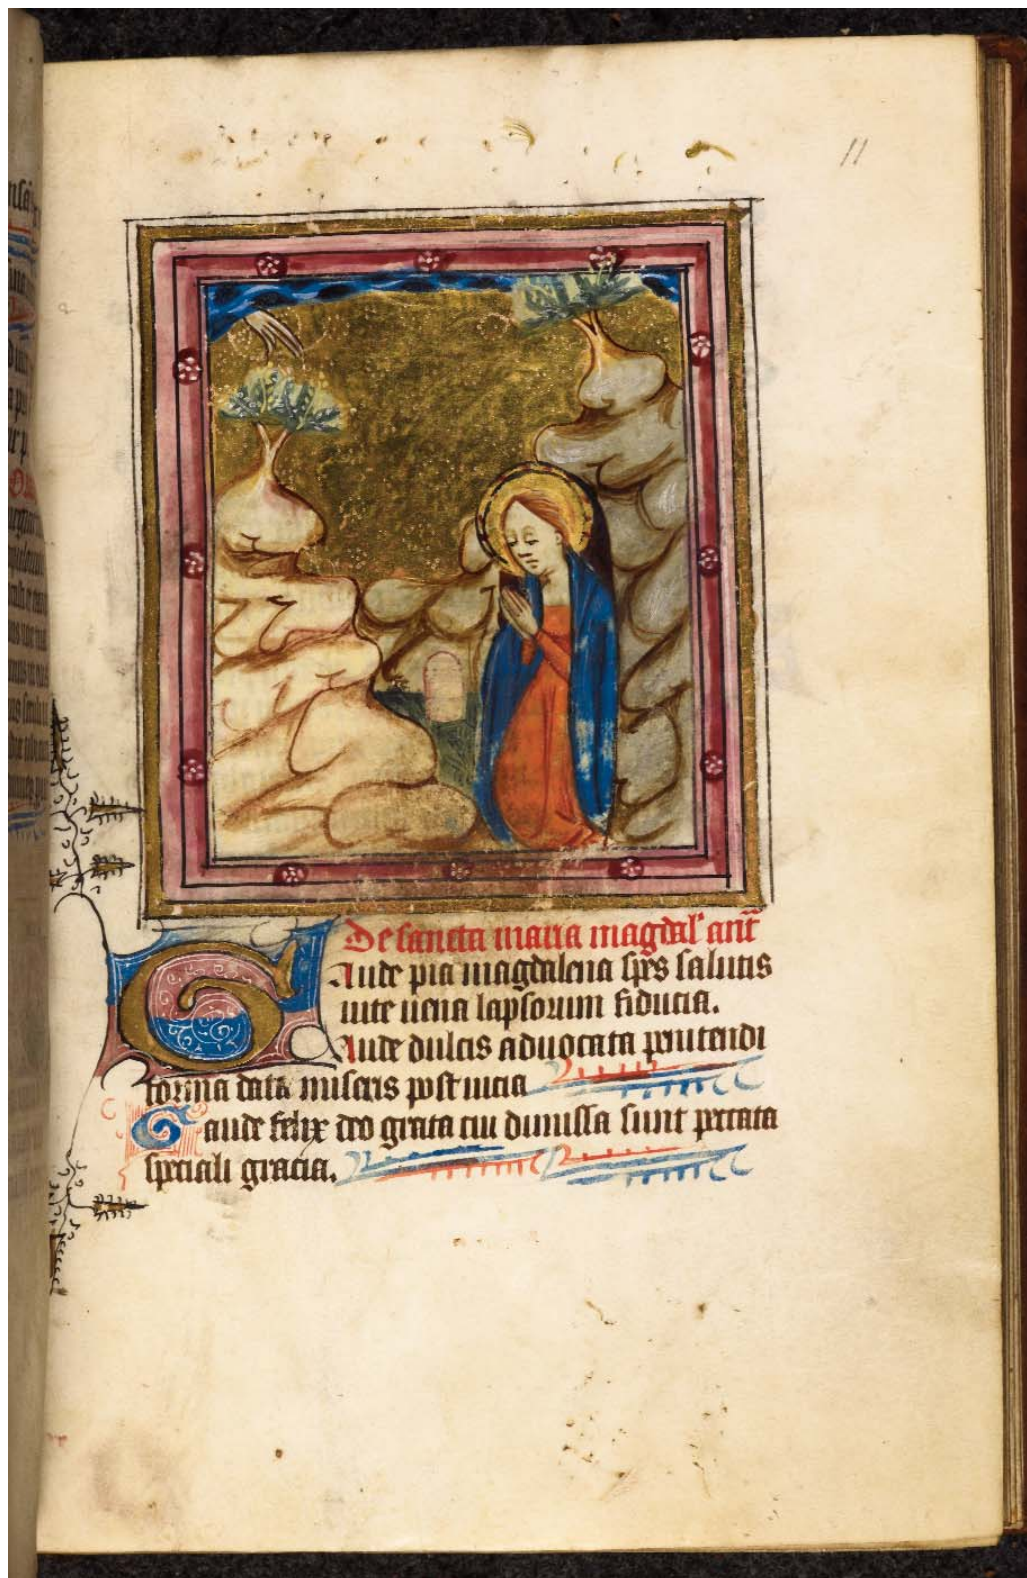 11
De sancta maria magdal' anť
Gaude pia magdalena spes salutis
uite uena lapsorum fiducia.
Gaude dulcis aduocata penitendi
forma data miseris post uicia
Gaude felix deo grata cui dimissa sunt peccata
speciali gracia.